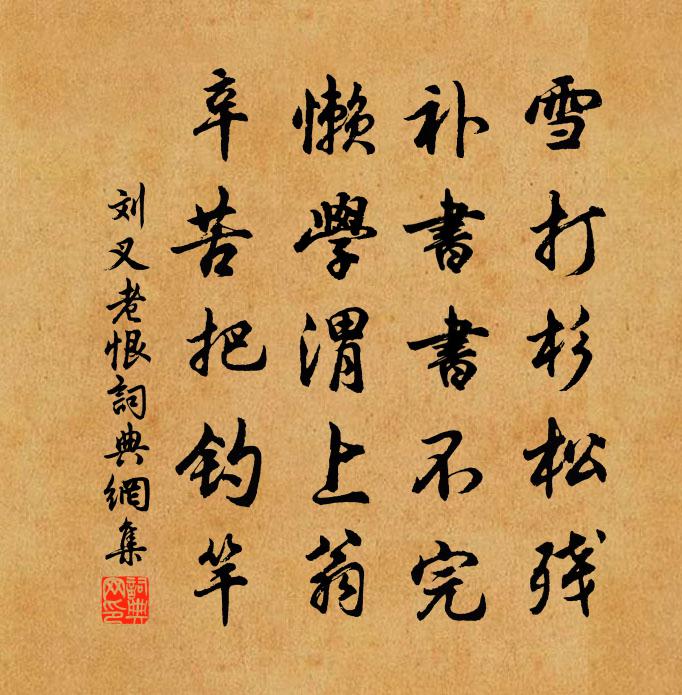 雪打杉松残
补書書不完
懒學渭上翁
辛苦把钓竿
刘叉老恨詞典網集
詞典網印